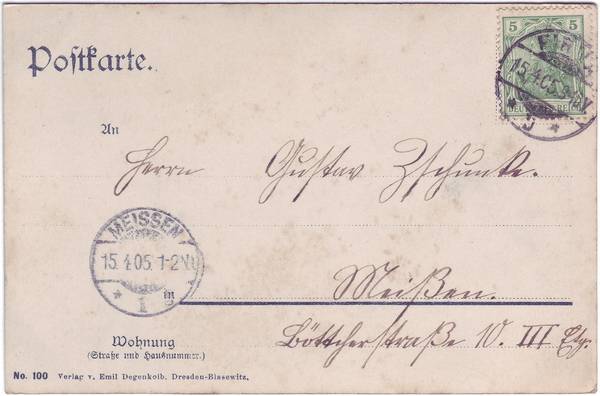 Postkarte.
5 5
PIRNA
15.4.05.
DEUTSCHES REICH
An
Herrn Gustav Zschunke.
MEISSEN
15.4.05. 1-2N.
1
in Meißen.
Wohnung
(Straße und Hausnummer.)
Böttcherstraße 10. III Etg.
No. 100 Verlag v. Emil Degenkolb, Dresden-Blasewitz.